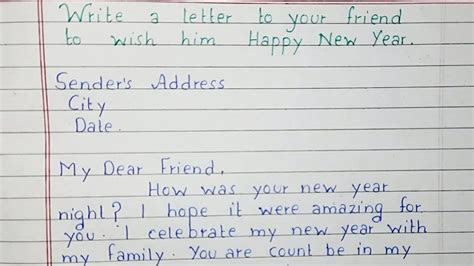 Write a letter to your friend
to wish him Happy New Year.
Sender's Address
City
Date.
My Dear Friend,
How was your new year
night? I hope it were amazing for
you. I celebrate my new year with
my family. You are count be in my